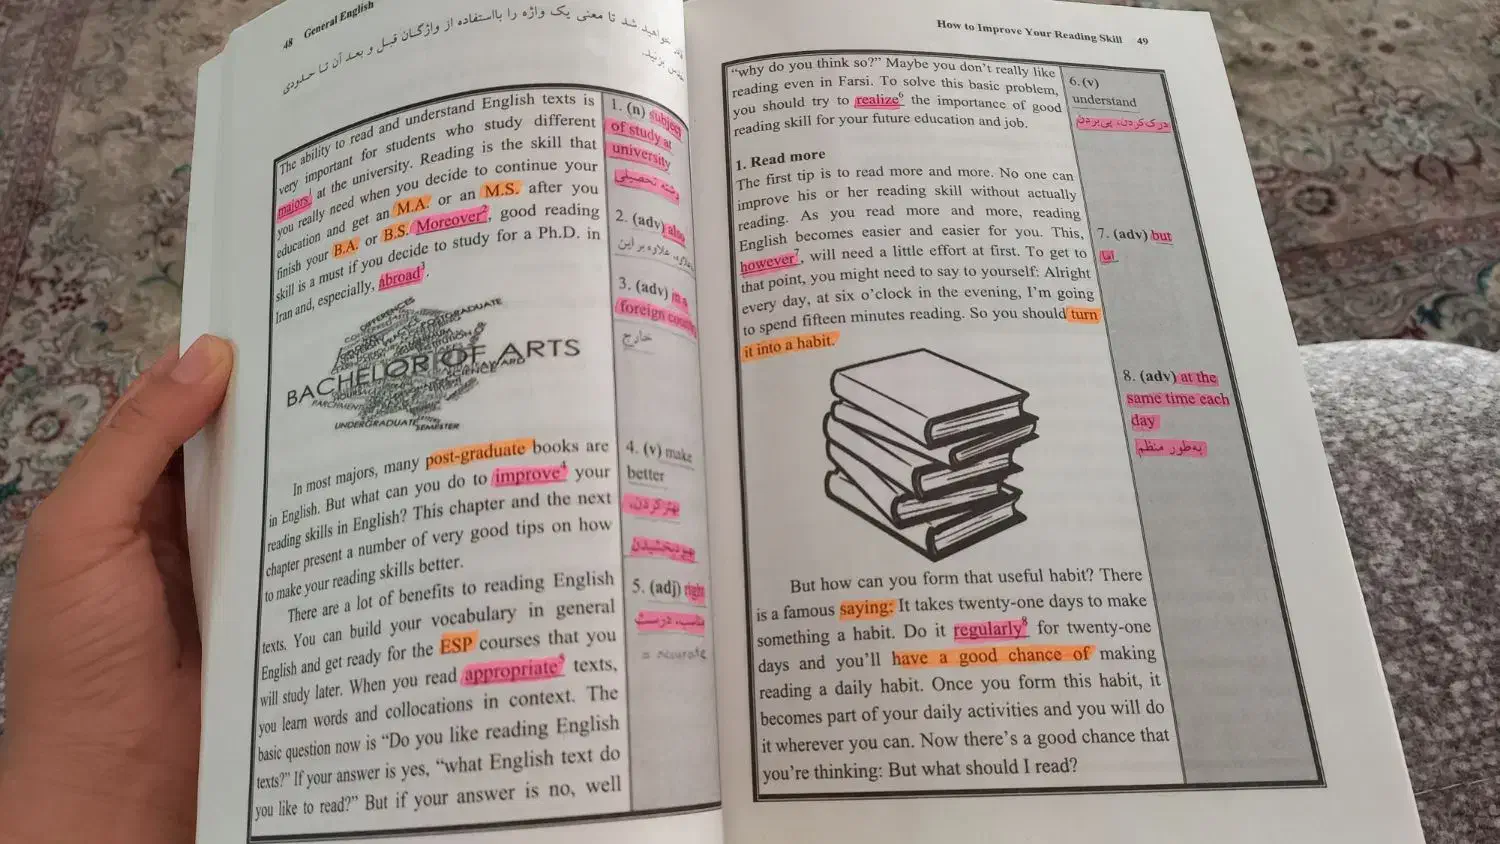 48 General English
خواهید شد تا معنی یک واژه را بااستفاده از واژگان قبل و بعد آن تا حدودی
بزنید.
The ability to read and understand English texts is
very important for students who study different
majors1 at the university. Reading is the skill that
you really need when you decide to continue your
education and get an M.A. or an M.S. after you
finish your B.A. or B.S. Moreover2, good reading
skill is a must if you decide to study for a Ph.D. in
Iran and, especially, abroad3.
DIFFERENCES
POSTGRADUATE
BACHELOR OF ARTS
SCIENCE AWARD
PARCHMENT
UNDERGRADUATE
SEMESTER
In most majors, many post-graduate books are
in English. But what can you do to improve4 your
reading skills in English? This chapter and the next
chapter present a number of very good tips on how
to make your reading skills better.
There are a lot of benefits to reading English
texts. You can build your vocabulary in general
English and get ready for the ESP courses that you
will study later. When you read appropriate5 texts,
you learn words and collocations in context. The
basic question now is “Do you like reading English
texts?” If your answer is yes, “what English text do
you like to read?” But if your answer is no, well
1. (n) subject
of study at
university
رشته تحصیلی
2. (adv) also
علاوه بر این
3. (adv) in a
foreign
خارج
4. (v) make
better
بهتر کردن،
بهبود بخشیدن
5. (adj) right
مناسب، درست
= accurate
How to Improve Your Reading Skill 49
“why do you think so?” Maybe you don’t really like
reading even in Farsi. To solve this basic problem,
you should try to realize6 the importance of good
reading skill for your future education and job.
1. Read more
The first tip is to read more and more. No one can
improve his or her reading skill without actually
reading. As you read more and more, reading
English becomes easier and easier for you. This,
however7, will need a little effort at first. To get to
that point, you might need to say to yourself: Alright
every day, at six o’clock in the evening, I’m going
to spend fifteen minutes reading. So you should turn
it into a habit.
But how can you form that useful habit? There
is a famous saying: It takes twenty-one days to make
something a habit. Do it regularly8 for twenty-one
days and you’ll have a good chance of making
reading a daily habit. Once you form this habit, it
becomes part of your daily activities and you will do
it wherever you can. Now there’s a good chance that
you’re thinking: But what should I read?
6. (v)
understand
درک کردن، پی بردن
7. (adv) but
اما
8. (adv) at the
same time each
day
به‌طور منظم